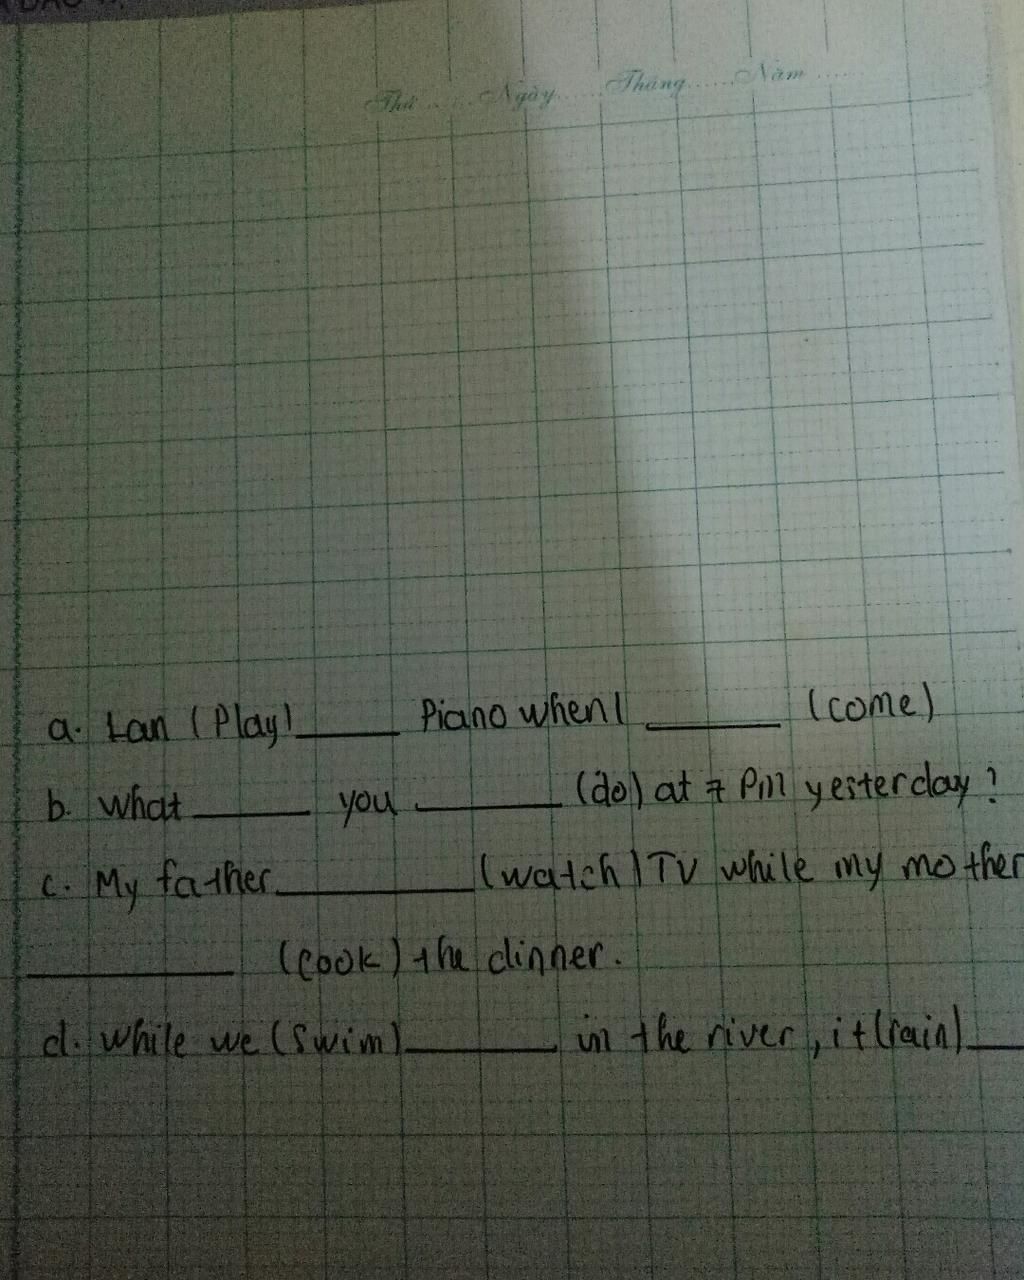 Thứ ...... Ngày ...... Tháng ...... Năm ......
a. Lan (Play) _____ Piano when I _____ (come)
b. What _____ you _____ (do) at 7 Pm yesterday?
c. My father _____ (watch) TV while my mother
_____ (cook) the dinner.
d. While we (Swim) _____ in the river, it (rain) _____